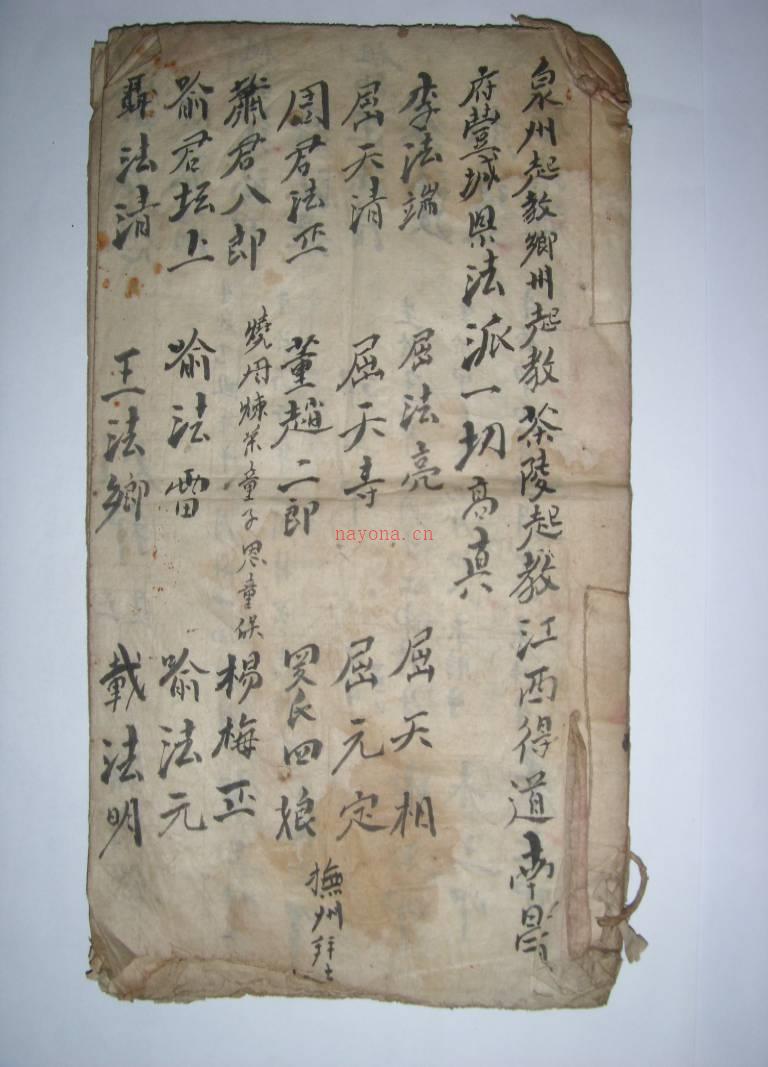 泉州起教鄉州起教茶陵起教江西得道南昌
府豐城県法派一切高真
李法端 屈法亮 屈天相
屈天清 屈天寿 屈元定
周君法丕 董趙二郎 罗氏四娘 撫州
萧君八郎 燒丹煉茶童子 恩童 楊梅丕
喻君坛上 喻法雷 喻法元
聶法清 王法鄉 載法明
nayona.cn